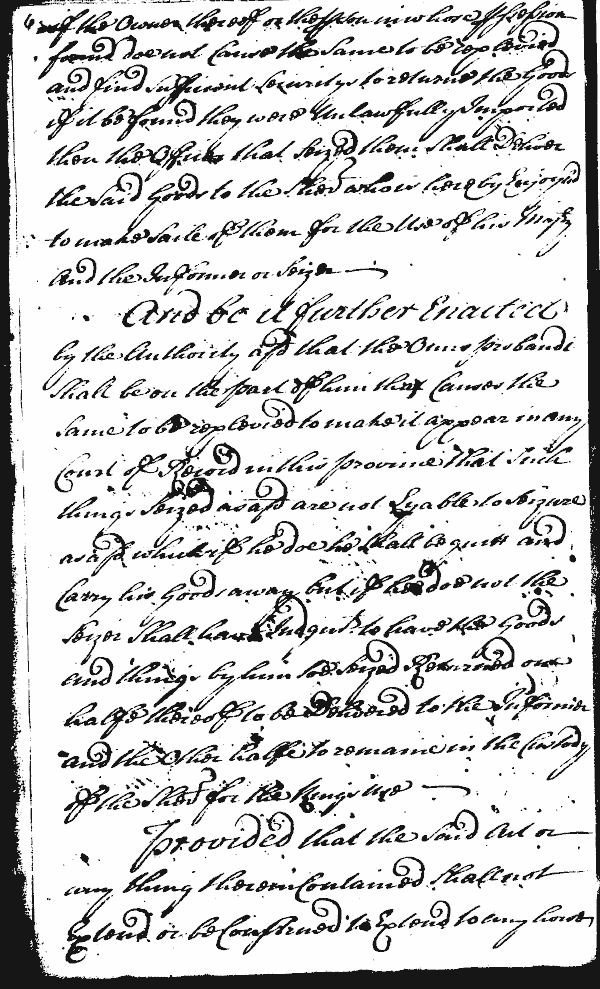 if the Owner thereof or the pson in whose possession
found doe not Cause the Same to be replevied
and find sufficient Security to returne the Goods
if it be found they were Unlawfully Imported
then the Officer that Seized them Shall Deliver
the said Goods to the Sher: who is hereby Enjoyned
to make Saile of them for the Use of his Maty
And the Informer or Seizer
And be it further Enacted
by the Authority afsd that the Onus probandi
Shall be on the part of him that Causes the
Same to be replevied to make it appear in any
Court of Record in this province that Such
things Seized as afsd are not Lyable to Seizure
as afsd which if he doe he Shall be quitt and
Carry his Goods away but if he doe not the
Seizer Shall have Judgmt to have the Goods
and things by him soe Seized Returned one
halfe thereof to be Delivered to the Informer
and the Other halfe to remaine in the Custody
of the Sher: for the Kings use
Provided that the said Act or
any thing therein Contained Shall not
Extend or be Construed to Extend to any horse